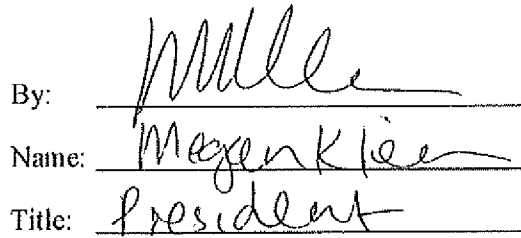 By:
Name: Megen Klein
Title: President